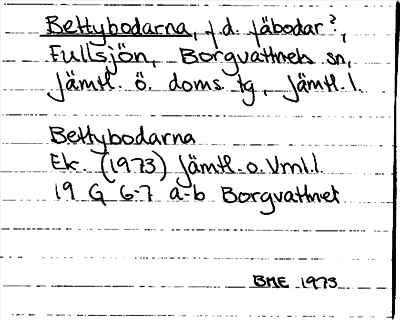 Bettybodarna, f.d. fäbodar?,
Fullsjön, Borgvattnets sn,
Jämtl. ö. doms. tg, Jämtl. l.
Bettybodarna
Ek. (1973) Jämtl. o. Vrnl. l.
19 G 6-7 a-b Borgvattnet
BME 1973